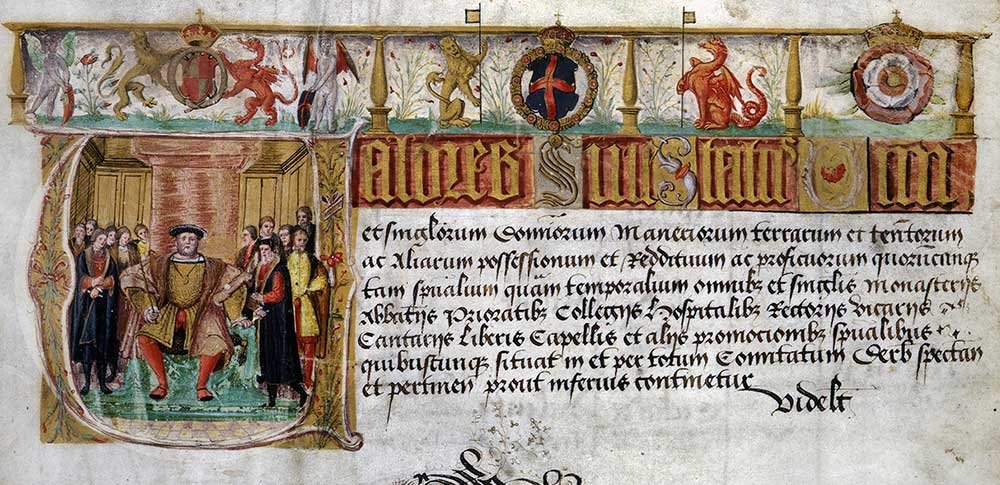 Valores Siue Status
et singlorum Domiorum Maneriorum terrarum et tentorum
ac Aliarum possessionum et Reddituum ac proficuorum quorumcunq
tam spualium quam temporalium omnibz et singlis Monasterijs
Abbatijs Prioratibz Collegijs Hospitalibz Rectorijs Vicarijs
Cantarijs Liberis Capellis et alijs promocionibz spualibus
quibuscunque situat in et per totum Comitatum Derb spectan
et pertinen prout inferius continetur
Videlt